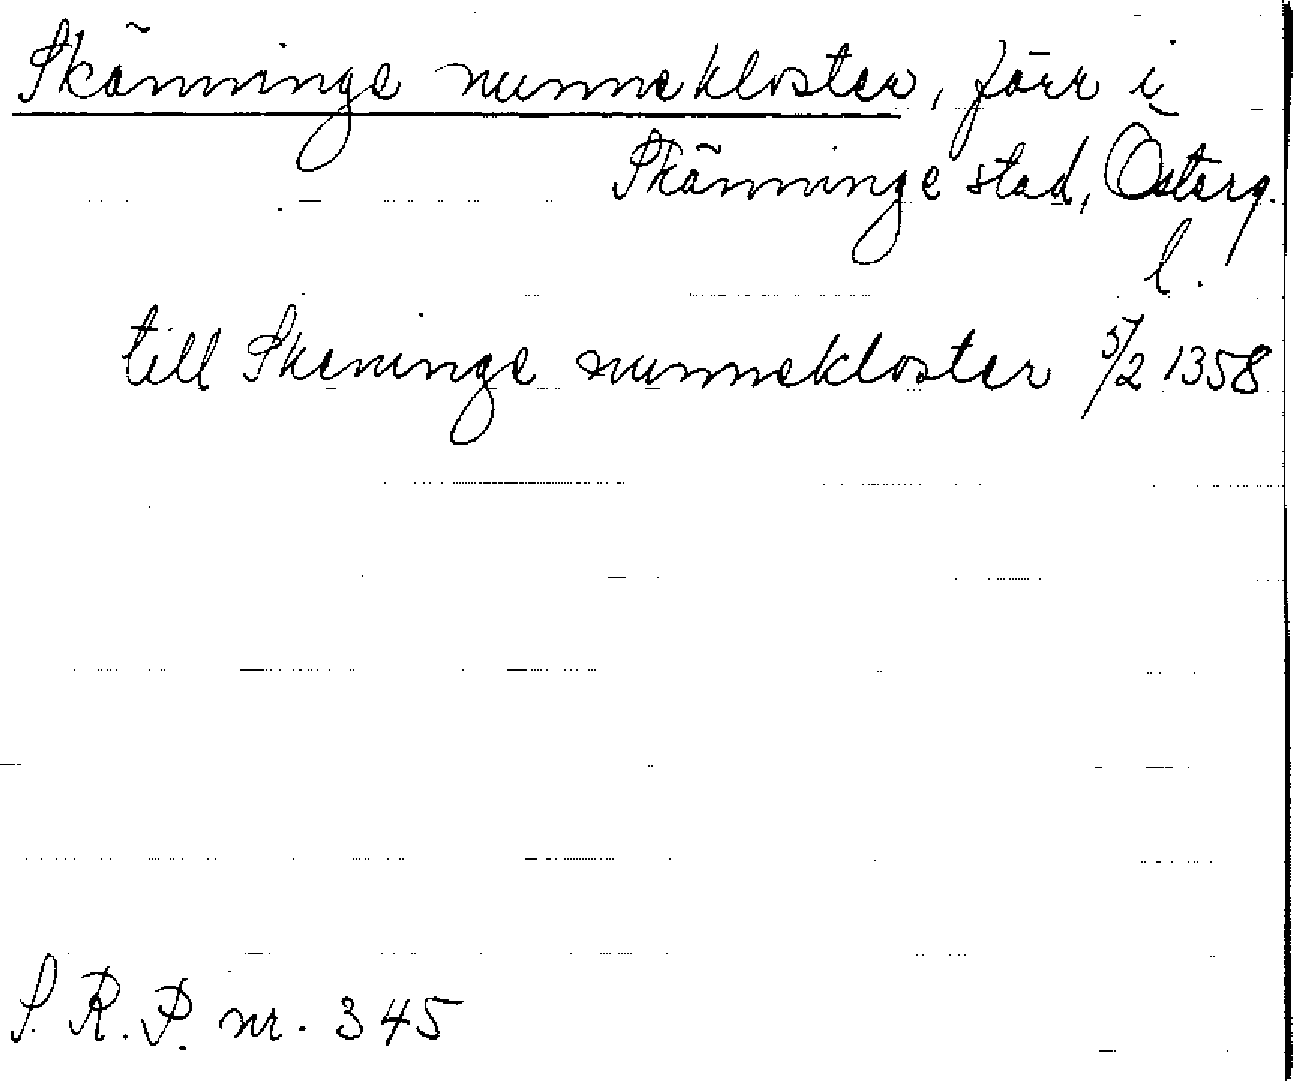 Skänninge nunnekloster, förr i
Skänninge stad, Österg.
l.
till Skeninge nunnekloster 5/2 1358
S. R. P. nr. 345